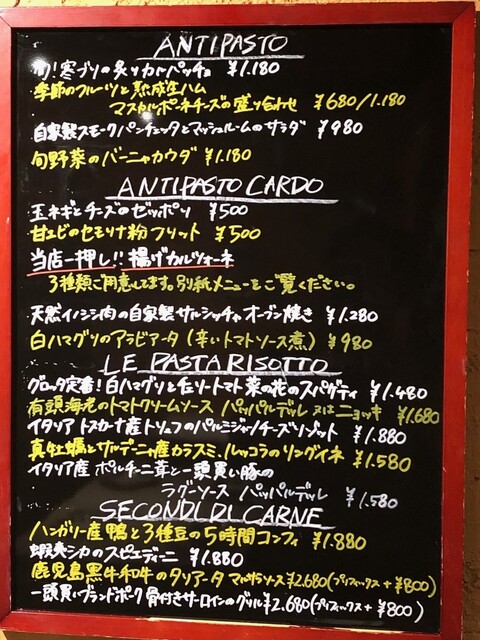 ANTIPASTO
旬!寒ブリの炙りカルパッチョ ¥1.180
季節のフルーツと熟成生ハム
マスカルポーネチーズの盛り合わせ ¥680/1.180
自家製スモークパンチェッタとマッシュルームのサラダ ¥980
旬野菜のバーニャカウダ ¥1.180
ANTIPASTO CARDO
玉ネギとチーズのゼッポリ ¥500
甘エビのセモリナ粉フリット ¥500
当店一押し!! 揚げカルツォーネ
3種類ご用意してます。別紙メニューをご覧ください。
天然イノシシ肉の自家製サルシッチャ オーブン焼き ¥1.280
白ハマグリのアラビアータ(辛いトマトソース煮) ¥980
LE PASTA RISOTTO
グロッタ定番!白ハマグリとセミドライトマト 菜の花のスパゲティ ¥1.480
有頭海老のトマトクリームソース パッパルデッレ 又はニョッキ ¥1.680
イタリア トスカーナ産トリュフのパルミジャーノチーズリゾット ¥1.880
真牡蠣とサルデーニャ産カラスミ、ルッコラのリングイネ ¥1.580
イタリア産 ポルチーニ茸と一頭買い豚の
ラグーソース パッパルデッレ ¥1.580
SECONDI DI CARNE
ハンガリー産鴨と3種豆の5時間コンフィ ¥1.880
蝦夷シカのスピエディーニ ¥1.880
鹿児島黒牛和牛のタリアータ マルサラソース ¥2.680(プリフィックス+¥800)
一頭買いブランドポーク 骨付きサーロインのグリル ¥2.680(プリフィックス+¥800)